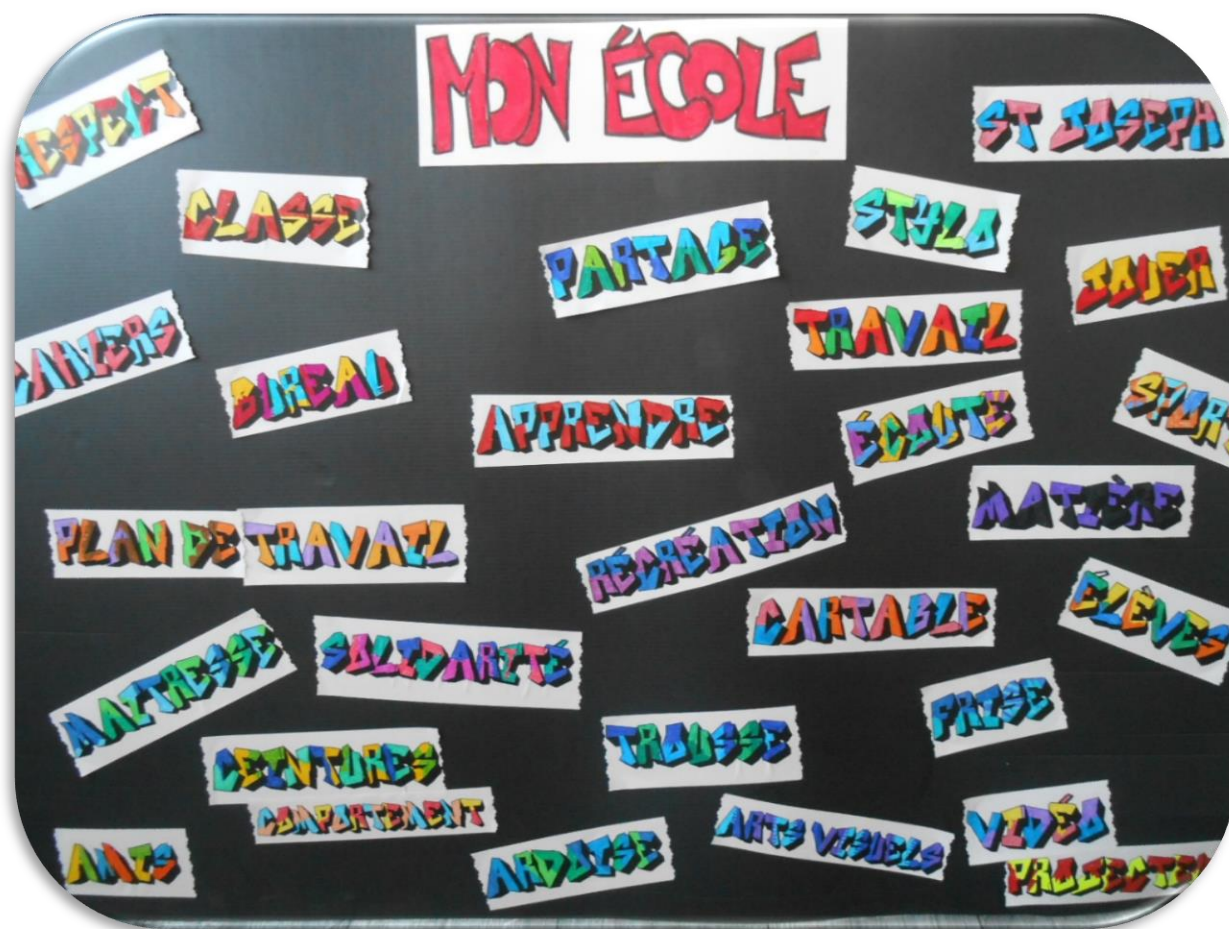 MON ÉCOLE
RESPECT
ST JOSEPH
CLASSE
STYLO
PARTAGE
JOUER
CAHIERS
TRAVAIL
BUREAU
APPRENDRE
ÉCOUTE
SPORT
MATIÈRE
PLAN DE TRAVAIL
RÉCRÉATION
CARTABLE
ÉLÈVES
MAITRESSE
SOLIDARITÉ
FRISE
TROUSSE
CEINTURES
COMPORTEMENT
ARTS VISUELS
VIDÉO
AMIS
ARDOISE
PROJECTE